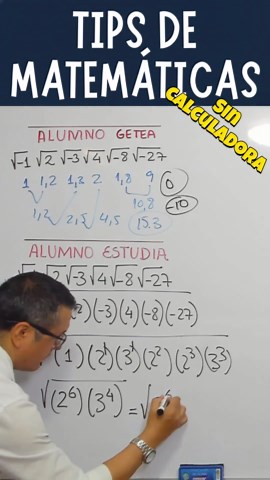 TIPS DE
MATEMÁTICAS
SIN
CALCULADORA
ALUMNO GETEA
√-1 √2 √-3 √4 √-8 √-27
1 1,2 1,3 2 1,8 9 0
10,8 -10
1,2 2,5 4,5 15.3
ALUMNO ESTUDIA
√2 √-3 √4 √-8 √-27
2)(-3)(4)(-8)(-27)
(1)(2¹)(3¹)(2²)(2³)(3³)
√(2⁶)(3⁴) = √